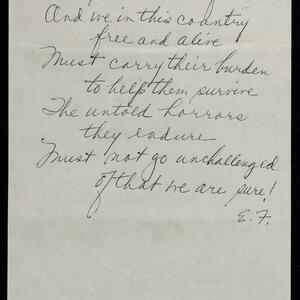 And we in this country
free and alive
Must carry their burden
to help them survive
The untold horrors
they endure
Must not go unchallenged
of that we are sure!
E. F.